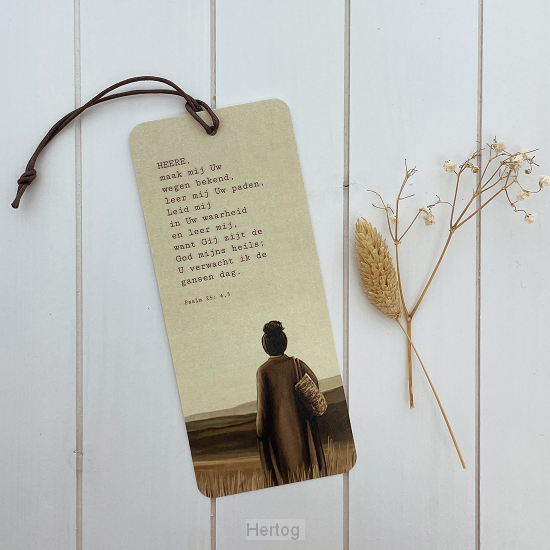 HEERE,
maak mij Uw
wegen bekend,
leer mij Uw paden.
Leid mij
in Uw waarheid
en leer mij,
want Gij zijt de
God mijns heils;
U verwacht ik de
gansen dag.
Psalm 25: 4,5
Hertog